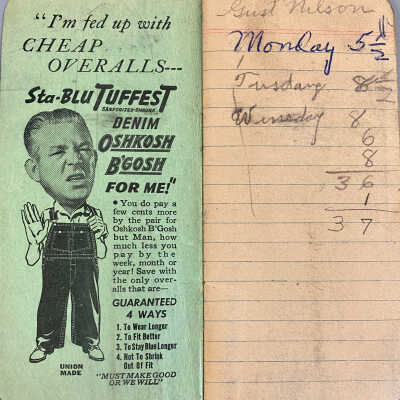 "I'm fed up with
CHEAP
OVERALLS---
Sta-Blu TUFFEST
SANFORIZED-SHRUNK
DENIM
OSHKOSH
B'GOSH
FOR ME!"
• You do pay a
few cents more
by the pair for
Oshkosh B'Gosh
but Man, how
much less you
pay by the
week, month or
year! Save with
the only over-
alls that are—
GUARANTEED
4 WAYS
1. To Wear Longer
2. To Fit Better
3. To Stay Blue Longer
4. Not To Shrink
Out Of Fit
UNION
MADE
"MUST MAKE GOOD
OR WE WILL"
Gust Nilson
Monday 5 1/2
Tusday 8 1/2
Wensday 8
6
8
36
1
37